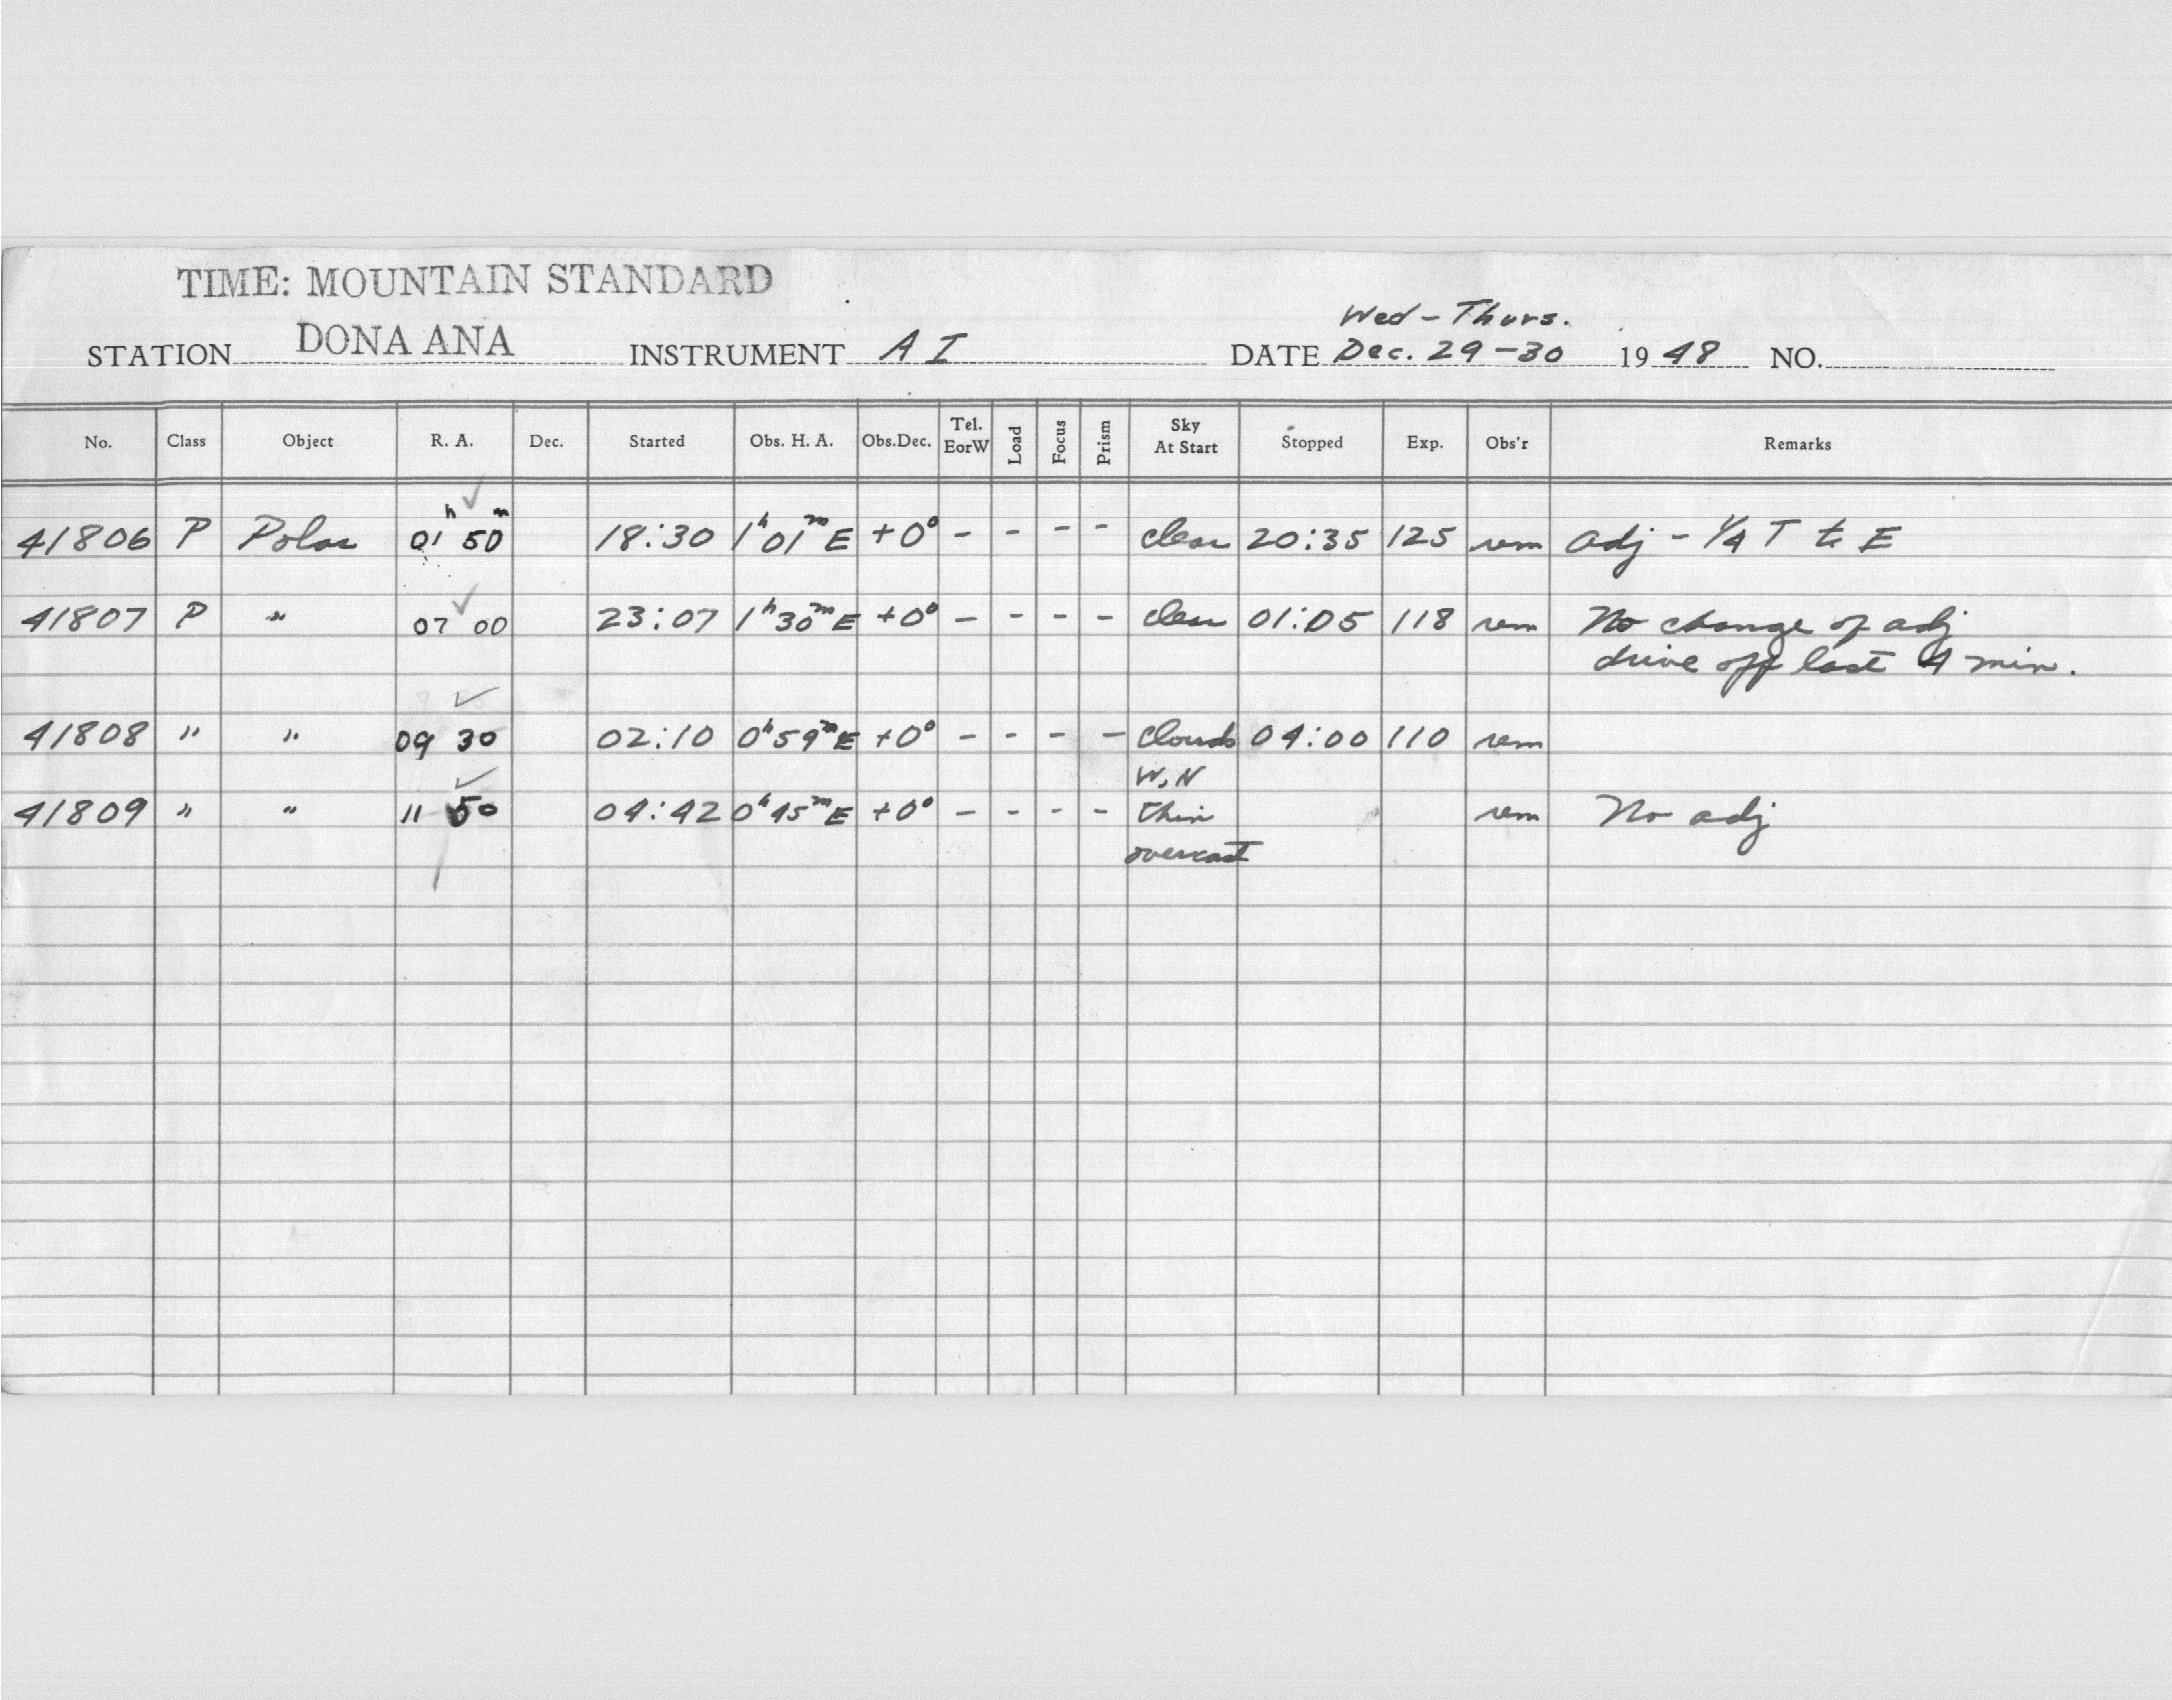 TIME: MOUNTAIN STANDARD
Wed - Thurs.
STATION DONA ANA INSTRUMENT A I DATE Dec. 29-30 1948 NO.
No. Class Object R. A. Dec. Started Obs. H. A. Obs.Dec. Tel. EorW Load Focus Prism Sky At Start Stopped Exp. Obs'r Remarks
41806 P Polar 01h 50m 18:30 1h 01m E +0° - - - - clear 20:35 125 rem adj - 1/4 T to E
41807 P " 07 00 23:07 1h 30m E +0° - - - - clear 01:05 118 rem No change of adj
drive off last 4 min.
41808 " " 09 30 02:10 0h 59m E +0° - - - - clouds 04:00 110 rem
W, N
41809 " " 11 50 04:42 0h 45m E +0° - - - - thin rem No adj
overcast